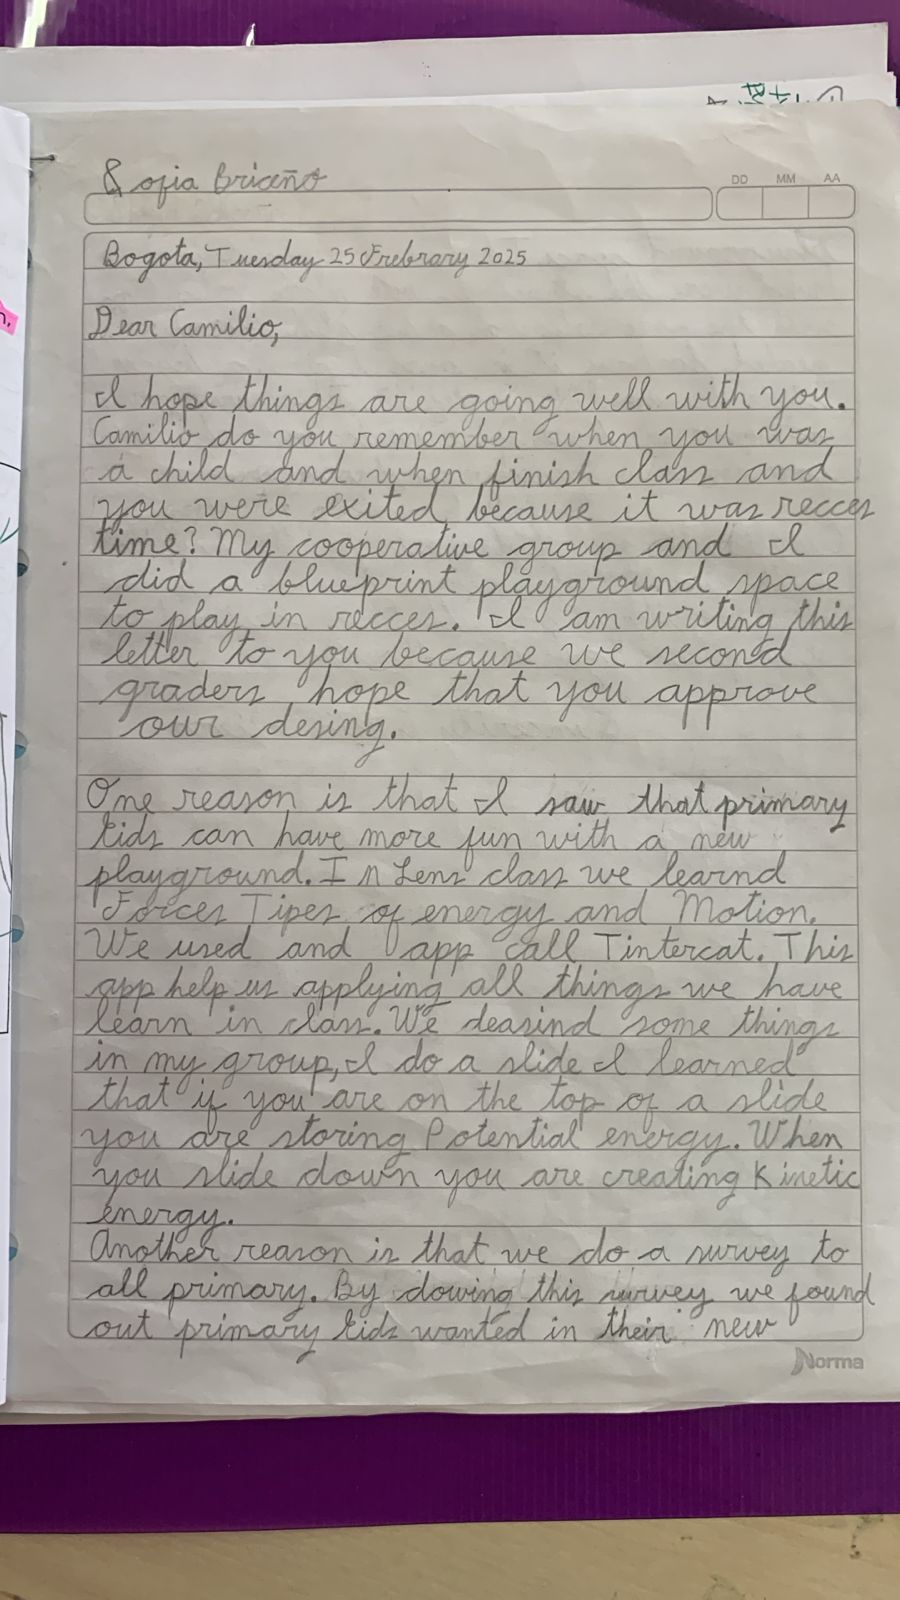 Sofia Briceño
DD MM AA
Bogota, Tuesday 25 Frebrary 2025
Dear Camilio,
I hope things are going well with you.
Camilio do you remember when you was
a child and when finish class and
you were exited because it was recces
time? My cooperative group and I
did a blueprint playground space
to play in recces. I am writing this
letter to you because we second
graders hope that you approve
our desing.
One reason is that I saw that primary
kids can have more fun with a new
playground. In Lens class we learnd
Forces Tipes of energy and Motion.
We used and app call Tintercat. This
app help us applying all things we have
learn in class. We deasind some things
in my group, I do a slide I learned
that if you are on the top of a slide
you are storing Potential energy. When
you slide down you are creating Kinetic
energy.
Another reason is that we do a survey to
all primary. By dowing this survey we found
out primary kids wanted in their new
Norma